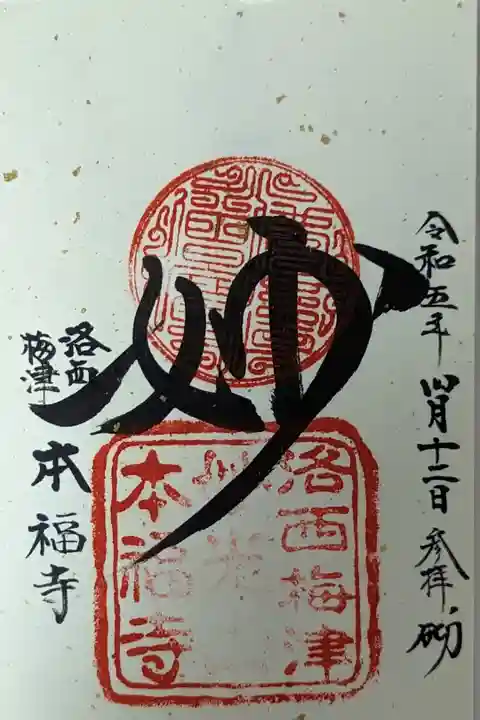 令和五年 四月十二日 参拝砌
妙
洛西
梅津
本福寺
洛西梅津
本福寺